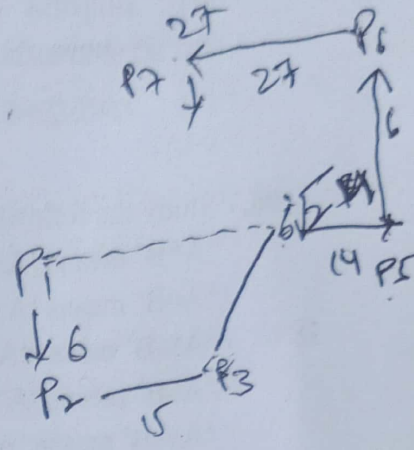 27
P6
P7
27
6
14
P5
P1
6
P2
P3